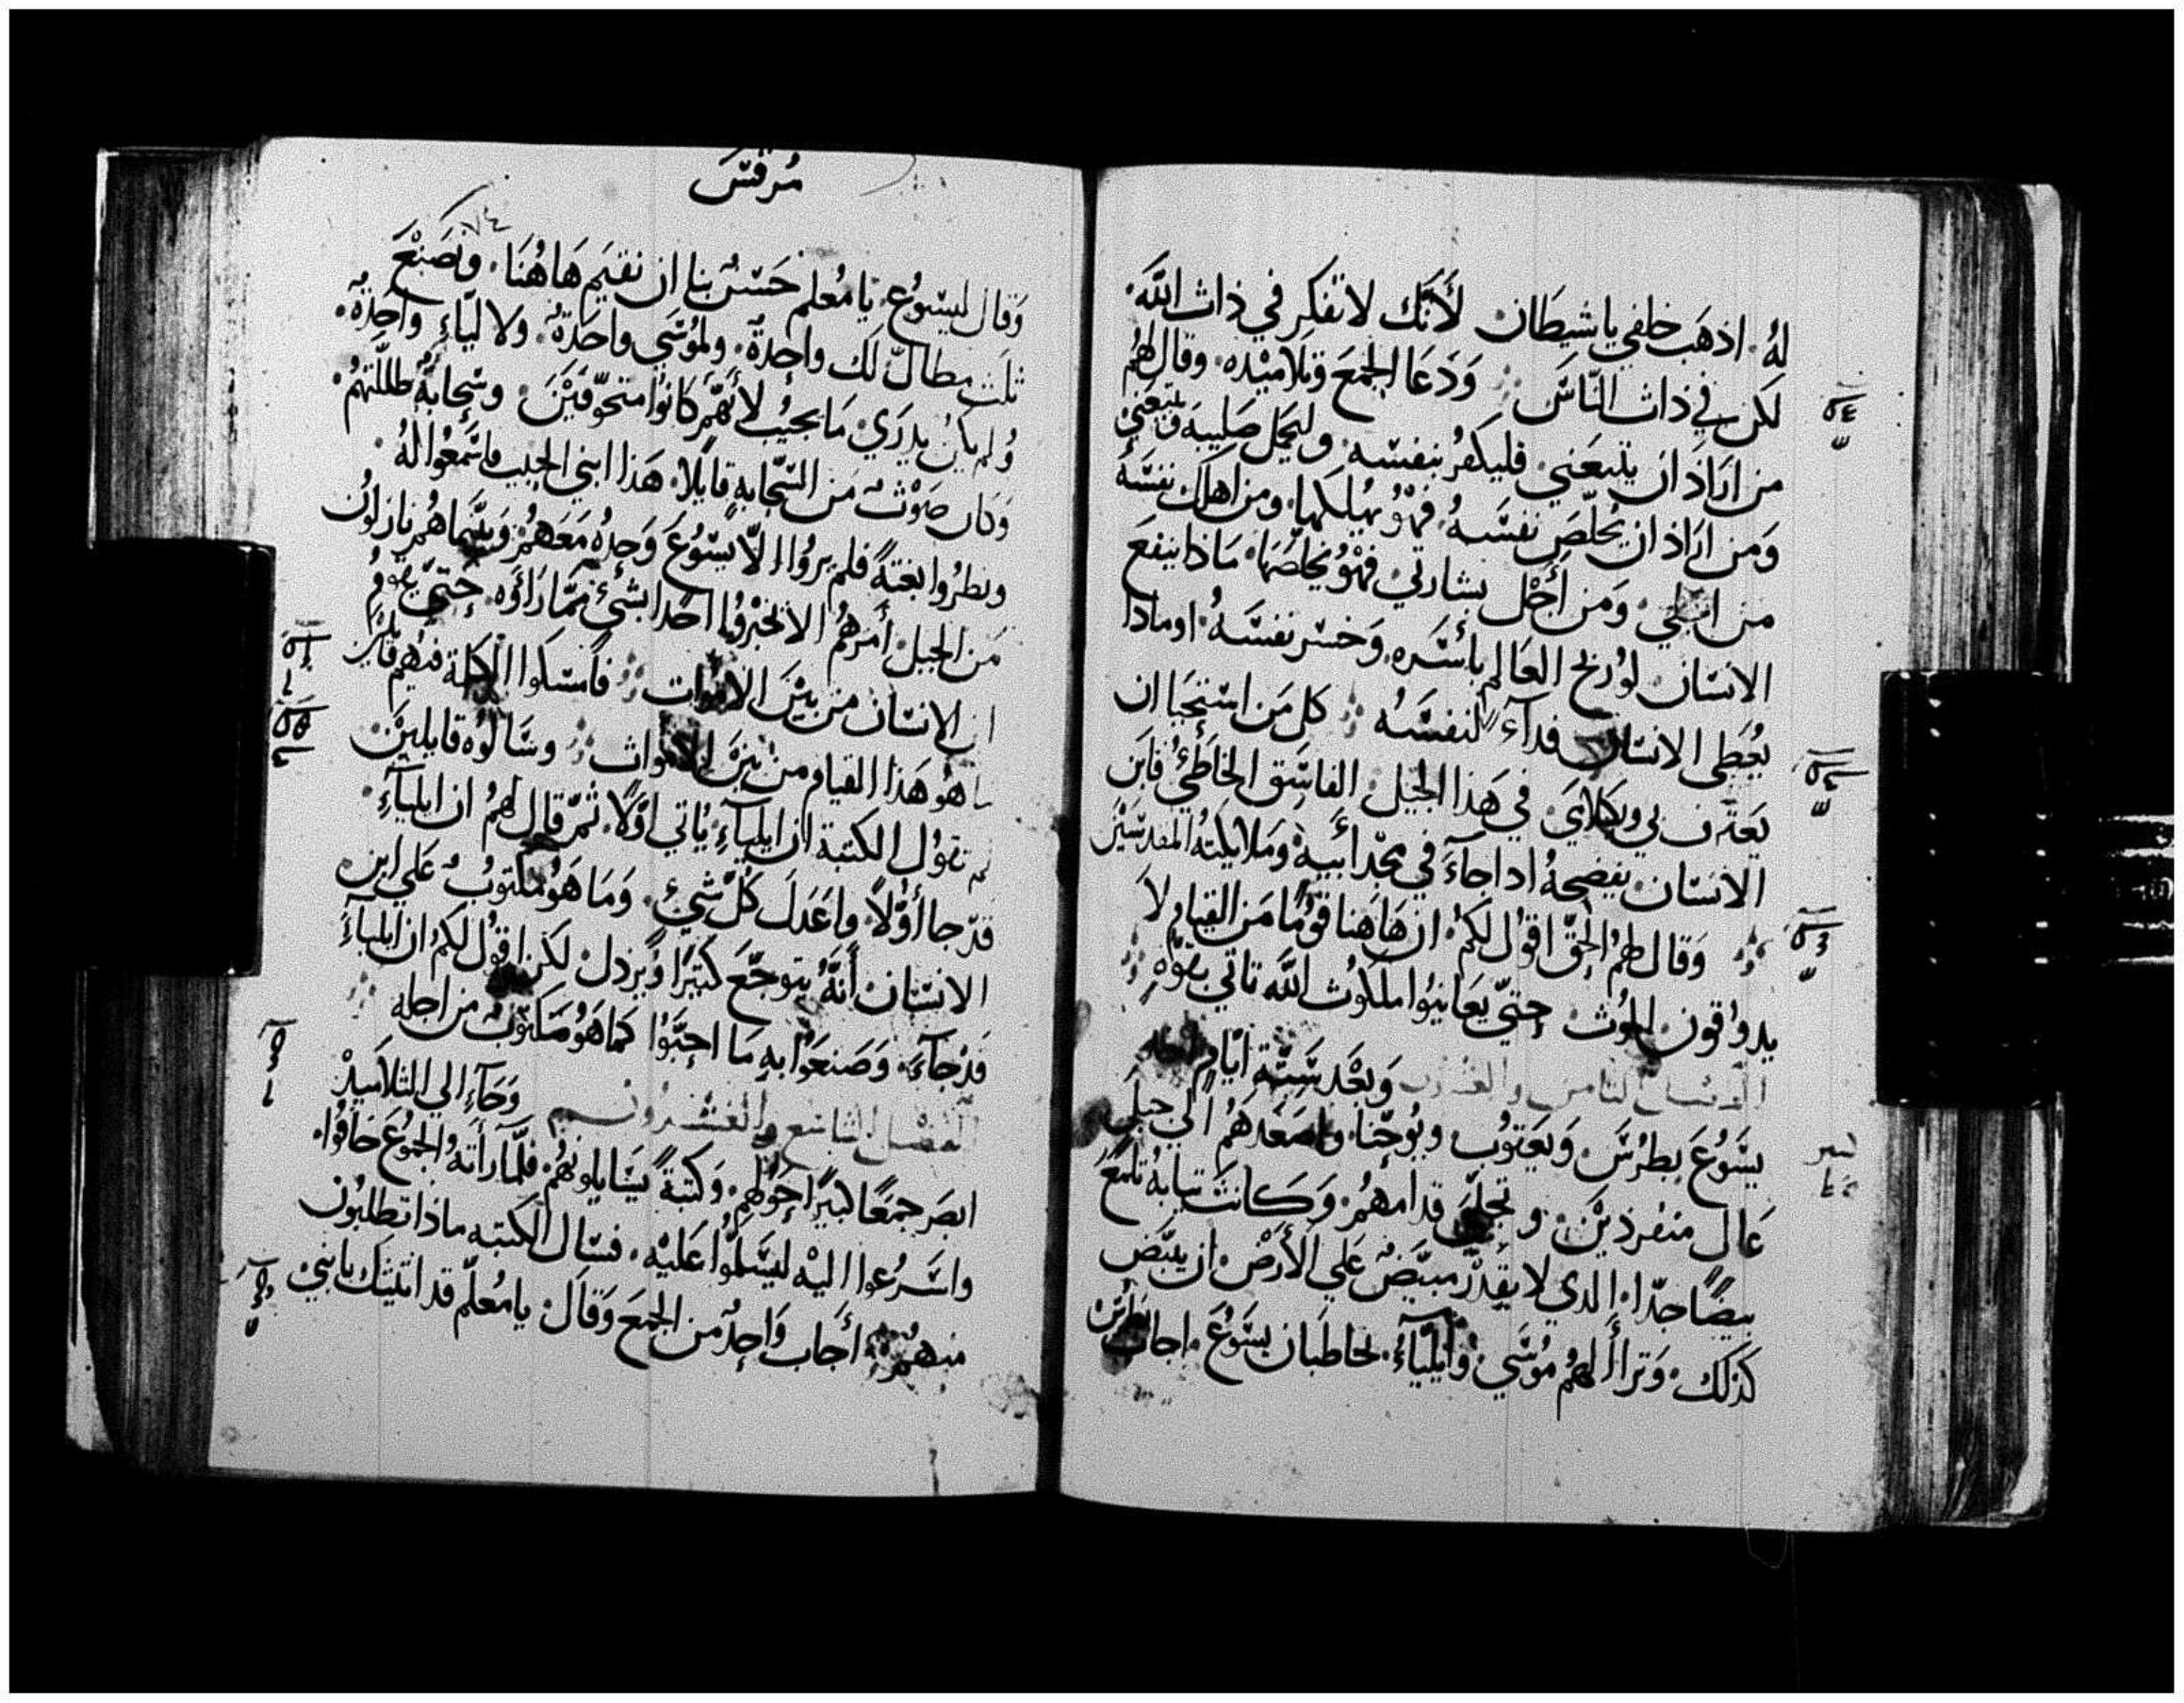 لهُ. اذهَب خلفي ياشيطان لأنَّك لاتفكر في ذات اللَّه.
لكن في ذات النّاسَ وَدَعَا الجمعَ وتلاميْده. وقال لهُم
من ارَادَ ان يتبعَني فليكفرُ بنفسه وليحمل صَليبه ويتبعَني
وَمن ارَاد ان يخلّصَ نفسَهُ فهْوُ يهلكها. ومن اهلك نفسَهُ
من اجلي. وَمن أجْل بشارتي فهْوُ يخلصْهَا. مَاذا ينفع
الانسَان لوْربح العَالم بأسَره. وَخسَر نفسَهُ. اوماذا
يعُطي الانسَان فدآء لنفسَهُ كل مَن استحيَا ان
يَعترف بي وبكلامي في هَذا الجيل الفاسِق الخاطئ فابن
الانسَان يفضحهُ اداجآءَ في مجْد أبيهِ وَملايكتهُ المقدسَيْن
وَقال لهمُ الحقّ اقوْل لكمُ ان هَاهنا قوْمًا مَن القيام لا
يدوُقون الموُت حتيّ يعَاينوُا ملكوُت اللَّه تاتي بقوه
الفصل الثامن والعشرون وَبعْد سَتّة ايّام اخد
يسَوُعَ بطرُسَ وَيعَقوُب ويوُحنّا واصَعَدهَمُ الي جبل
عَال منفردَيْن وتجلّي قدامهمُ. وَكانت ثيابهُ تلمَع
بيضًا جدًّا. الدي لا يقدرْ مبيّضُ عَلي الأرْض ان يبيّض
كذلك. وَتراأ لهمُ موُسَي وَأيليّآءُ. يخاطبَان يسَوُعَ. اجاب بطرسَ
مُرقسَ
٧٤
وَقال ليسَوُع. يا مُعلم حَسَنُ بنا ان نقيَم هَاهُنَا. ونصَنعَ
ثلث مظالّ لَك واحدةُ. ولموُسَي واحَدةُ. ولا ليّآءِ واحِدةُ.
وُلم يكنُ يدرَيِ مَا يجيبُ لأنهّم كانوُا متخوّفيَْنَ وسْحابةٌ ظللّتهمُ.
وَكان صَوْتُ مَن السّحَابه قايلا. هَذا ابني الحبيب فاسَمعُوا لهُ.
ونظرُوا بغتةً فلم يروُا الاّ يسَوُعَ وَحدهُ مَعَهمُ وَبينَما همُ نازلوُن
مَن الجبل أمَرهمُ الا تخبْروُا احَدا بشئٍ ممّا رَاوُه. حتيّ يقومُ
ابن الانسَان من بيْنَ الاموَات فأمسَكوا الكلمة فيهم قايلين
ما هوُ هَذا القيام من بيَْن الاموات وسَالوُه قايليَْن
لم تقوُل الكتبة ان ايليآءِ يُاتي اوّلًا. ثمّ قال لهمُ ان ايليآءِ.
قدّ جا أوُّلاً. واعَدلَ كُلّ شيءٍ. وَمَا هوُ مكتوُبُ عَلي ابن
الانسَان أنَّهُ يتوجّعَ كثيرًا وُيرْدل لكن اقوُل لكم ان ايليآءِ
قدْجآءَ. وَصَنعَوُا بهِ مَا احبّوُا كمَا هوُ مَكتوُبُ من اجله
الفصْل التاسع والعشرون وَجآءِ الي التلاميدْ
ابصَر جمعًا كثيرًا حَولهم. وَكتبةً يسَايلونهمُ. فلّما رأتهُ الجموُعَ خافوُا.
واسَرعُوا اليْه ليسَلموُا عَليْه. فسَال الكتبه ماذا تطلبوُن
منهمُ. أجَاب وَاحدُ من الجمعَ وَقال يا مُعلّم قد اتيتك بابنيَ